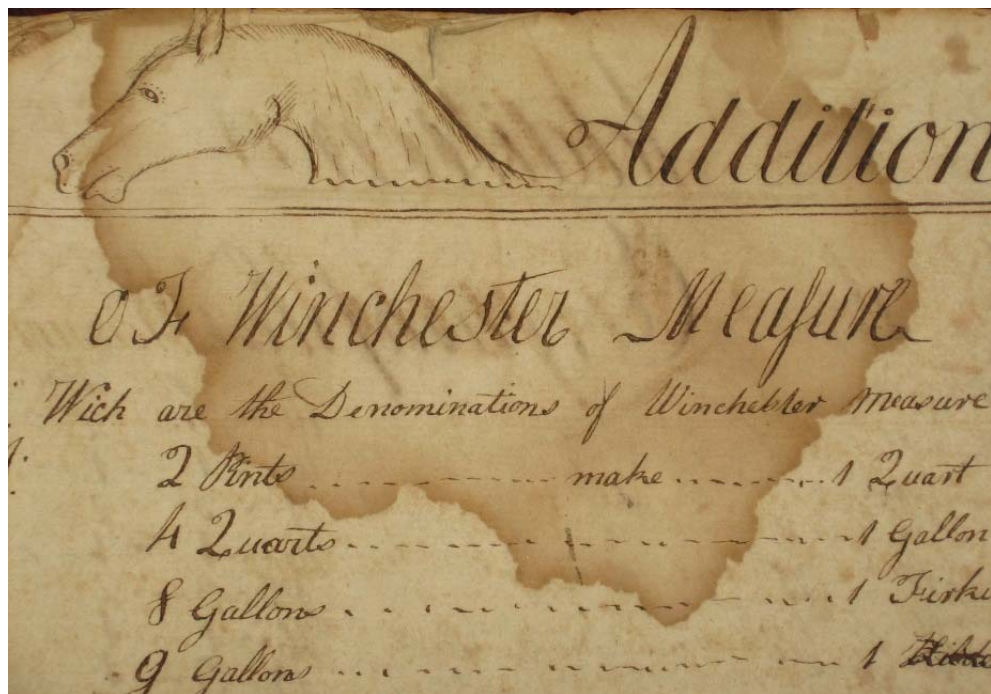 Addition
OF Winchester Measure
Wich are the Denominations of Winchester Measure
2 Pints make 1 Quart
4 Quarts 1 Gallon
8 Gallons 1 Firki
9 Gallons 1